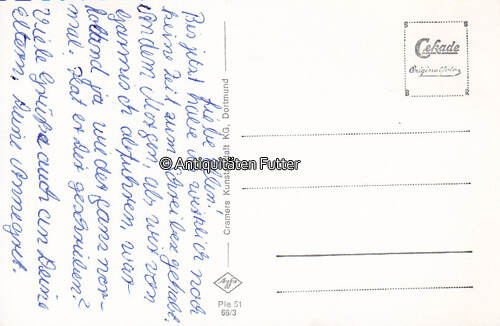 Liebe
Bis jetzt habe ich wirklich noch
keine Zeit zum Schreiben gehabt.
An dem Morgen, als wir von
Garmisch abfuhren, war
ja wieder ganz nor-
mal. Hat er Dir geschrieben?
Viele Grüße auch an Deine
Eltern, Deine Annegret.
© Antiquitäten Futter
Cramers Kunstanstalt KG, Dortmund
Cekade
Original
Agfa
Pie 51
66/3